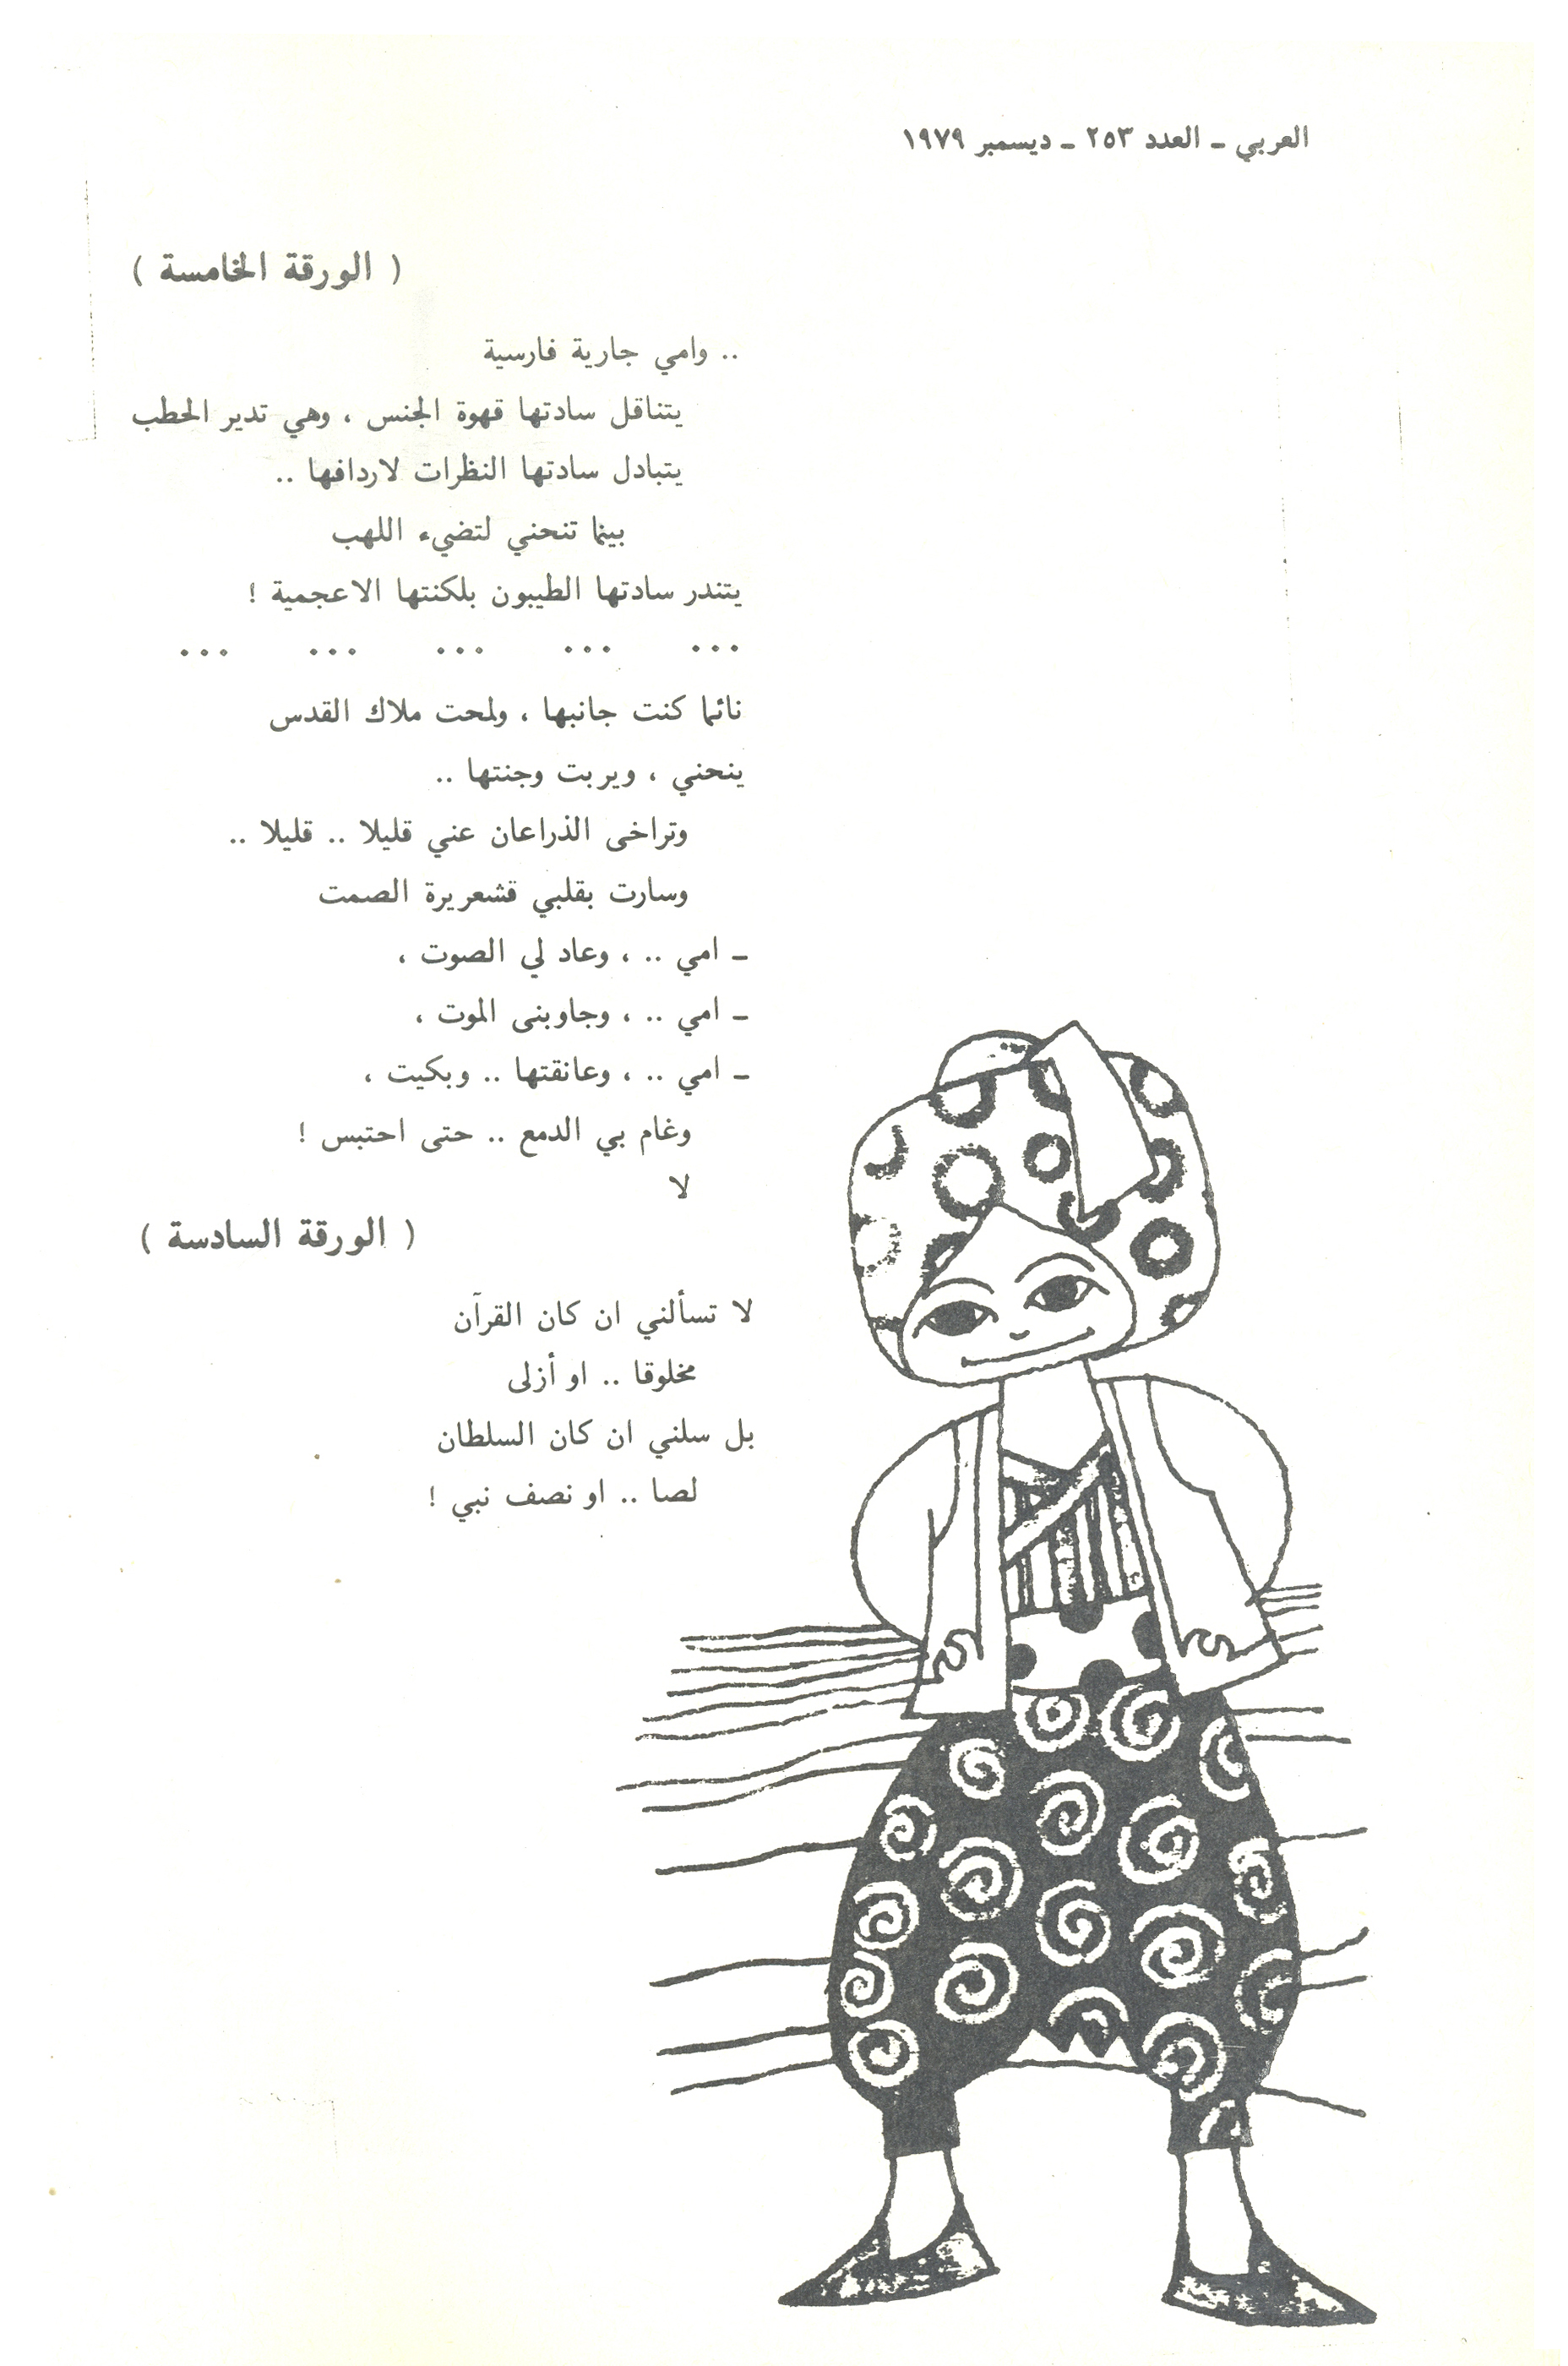 العربي ـ العدد ٢٥٣ ـ ديسمبر ١٩٧٩
( الورقة الخامسة )
.. وامي جارية فارسية
يتناقل سادتها قهوة الجنس ، وهي تدير الحطب
يتبادل سادتها النظرات لاردافها ..
بينما تنحني لتضيء اللهب
يتندر سادتها الطيبون بلكنتها الاعجمية !
... ... ... ... ...
نائما كنت جانبها ، ولمحت ملاك القدس
ينحني ، ويربت وجنتها ..
وتراخى الذراعان عني قليلا .. قليلا ..
وسارت بقلبي قشعريرة الصمت
ـ امي .. ، وعاد لي الصوت ،
ـ امي .. ، وجاوبنى الموت ،
ـ امي .. ، وعانقتها .. وبكيت ،
وغام بي الدمع .. حتى احتبس !
لا
( الورقة السادسة )
لا تسألني ان كان القرآن
مخلوقا .. او أزلى
بل سلني ان كان السلطان
لصا .. او نصف نبي !